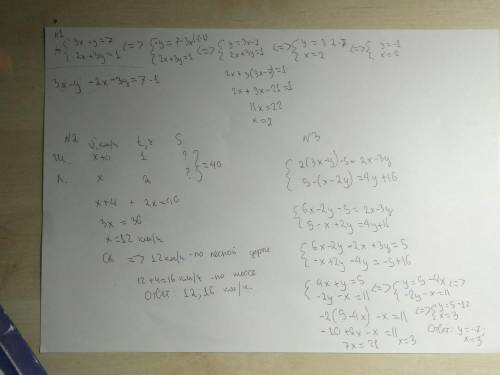 N1
{3x-y=7 <=> {-y=7-3x |·(-1) <=> {y=3x-7 <=> {y=3·2-7 <=> {y=-1
{2x+3y=1 {2x+3y=1 {2x+3y=1 {x=2 {x=2
3x-y -2x-3y=7-1
2x+3(3x-7)=1
2x+9x-21=1
11x=22
x=2
N2
v, км/ч t, ч S
Ш. x+4 1 ?
Л. x 2 ? } =40
x+4 + 2x=40
3x = 36
x=12 км/ч
=> 12км/ч - по лесной дороге
12+4=16км/ч - по шоссе
Ответ: 12; 16 км/ч
N3
{2(3x-y)-5=2x-3y
{5-(x-2y)=4y+16
{6x-2y-5=2x-3y
{5-x+2y=4y+16
{6x-2y-2x+3y=5
{-x+2y-4y=-5+16
{4x+y=5 <=> {y=5-4x <=>
{-2y-x=11 {-2y-x=11
-2(5-4x)-x=11 <=> {y=5-12
{x=3
-10+8x-x=11
7x=21 x=3
Ответ: y=-7
x=3